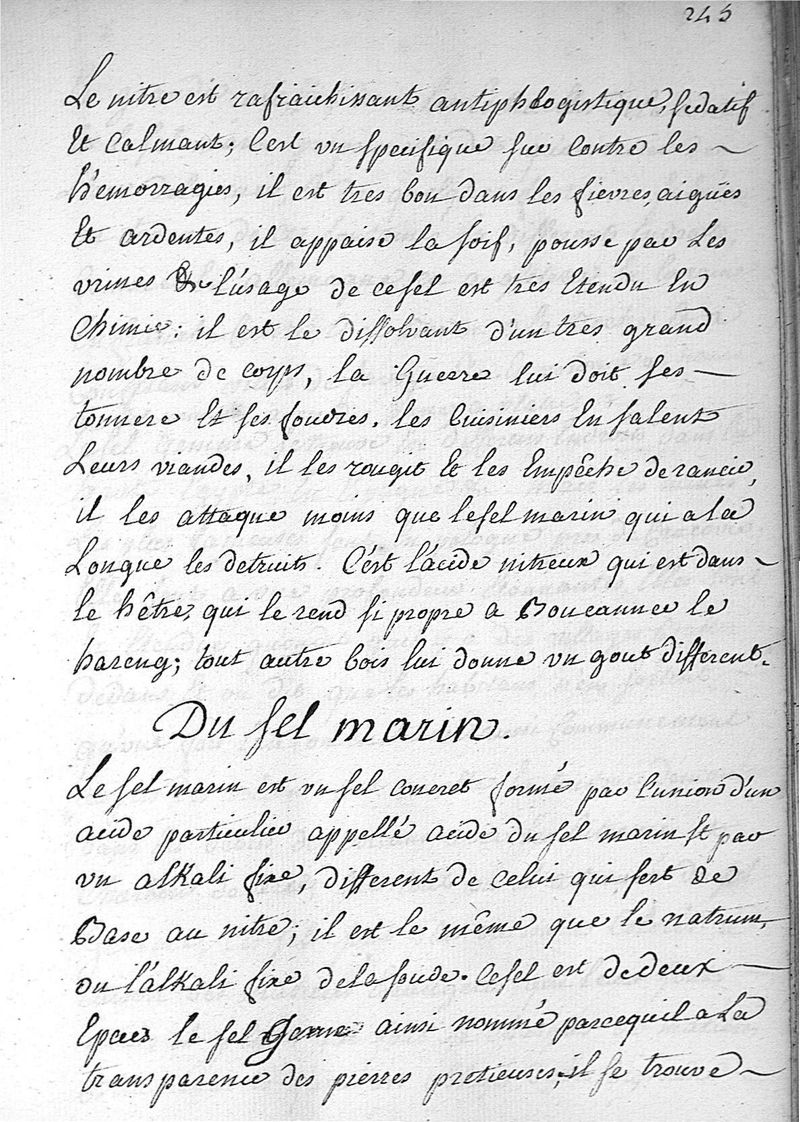 245
Le nitre est rafraichissant antiphlogistique, sedatif
Et Calmant; C'est un specifique sur Contre les
hémorragies, il est tres bon dans les fievres aigües
Et ardentes, il appaise la soif, pousse par Les
urines & L'úsage de ce sel est tres Etendu En
Chimie: il est le dissolvant d'un tres grand
nombre de corps, la Guerre lui doit ses
tonnere Et ses foudres. les Cuisiniers En salent
Leurs viandes, il les rougit Et les Empêche de rancir,
il les attaque moins que le sel marin qui a la
Longue les detruits. C'est l'acide nitreux qui est dans
le hêtre, qui le rend si propre a Boucanner le
hareng; tout autre bois lui donne un gout different.
Du sel marin.
Le sel marin est un sel concret formé par l'union d'un
acide particulier appellé acide du sel marin Et par
un alkali fixe, different de Celui qui sert de
Base au nitre; il est le même que le natrum,
ou l'alkali fixe de la soude. Ce sel est de deux
le sel Gemme ainsi nommé parcequil a La
transparence des pierres pretieuses, il se trouve